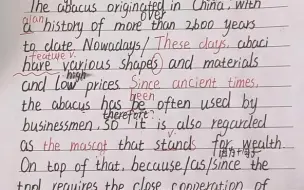 The abacus originated in China, with
plan over
a history of more than 2600 years
to date. Nowadays/ These days, abaci
feature v.
have various shapes and materials
high
and low prices Since ancient times,
been
the abacus has be often used by
therefore
businessmen, so it is also regarded
v.
as the mascot that stands for wealth
On top of that, because/as/since the
tool requires the close cooperation of